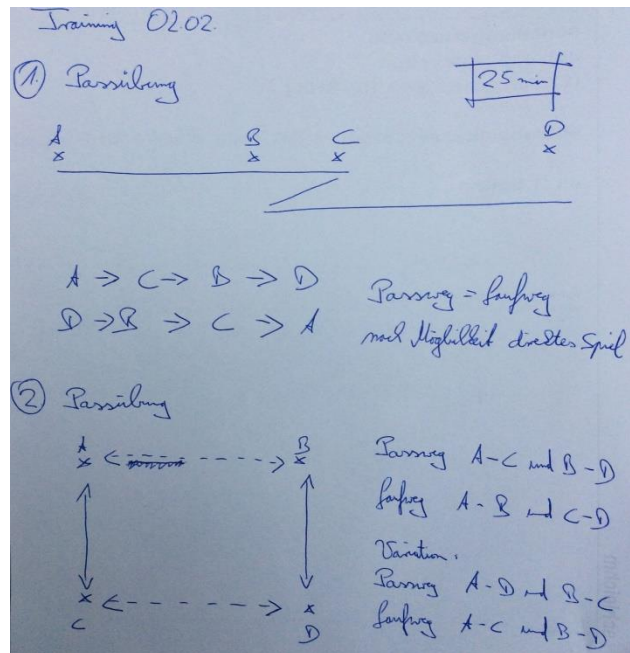 Training 02.02.
1. Passübung
25 min
A B C D
x x x x
A → C → B → D
D → B → C → A
Passweg = Laufweg
nach Möglichkeit direktes Spiel
2 Passübung
A B
x x
x x
C D
Passweg A-C und B-D
Laufweg A-B und C-D
Variation:
Passweg A-D und B-C
Laufweg A-C und B-D